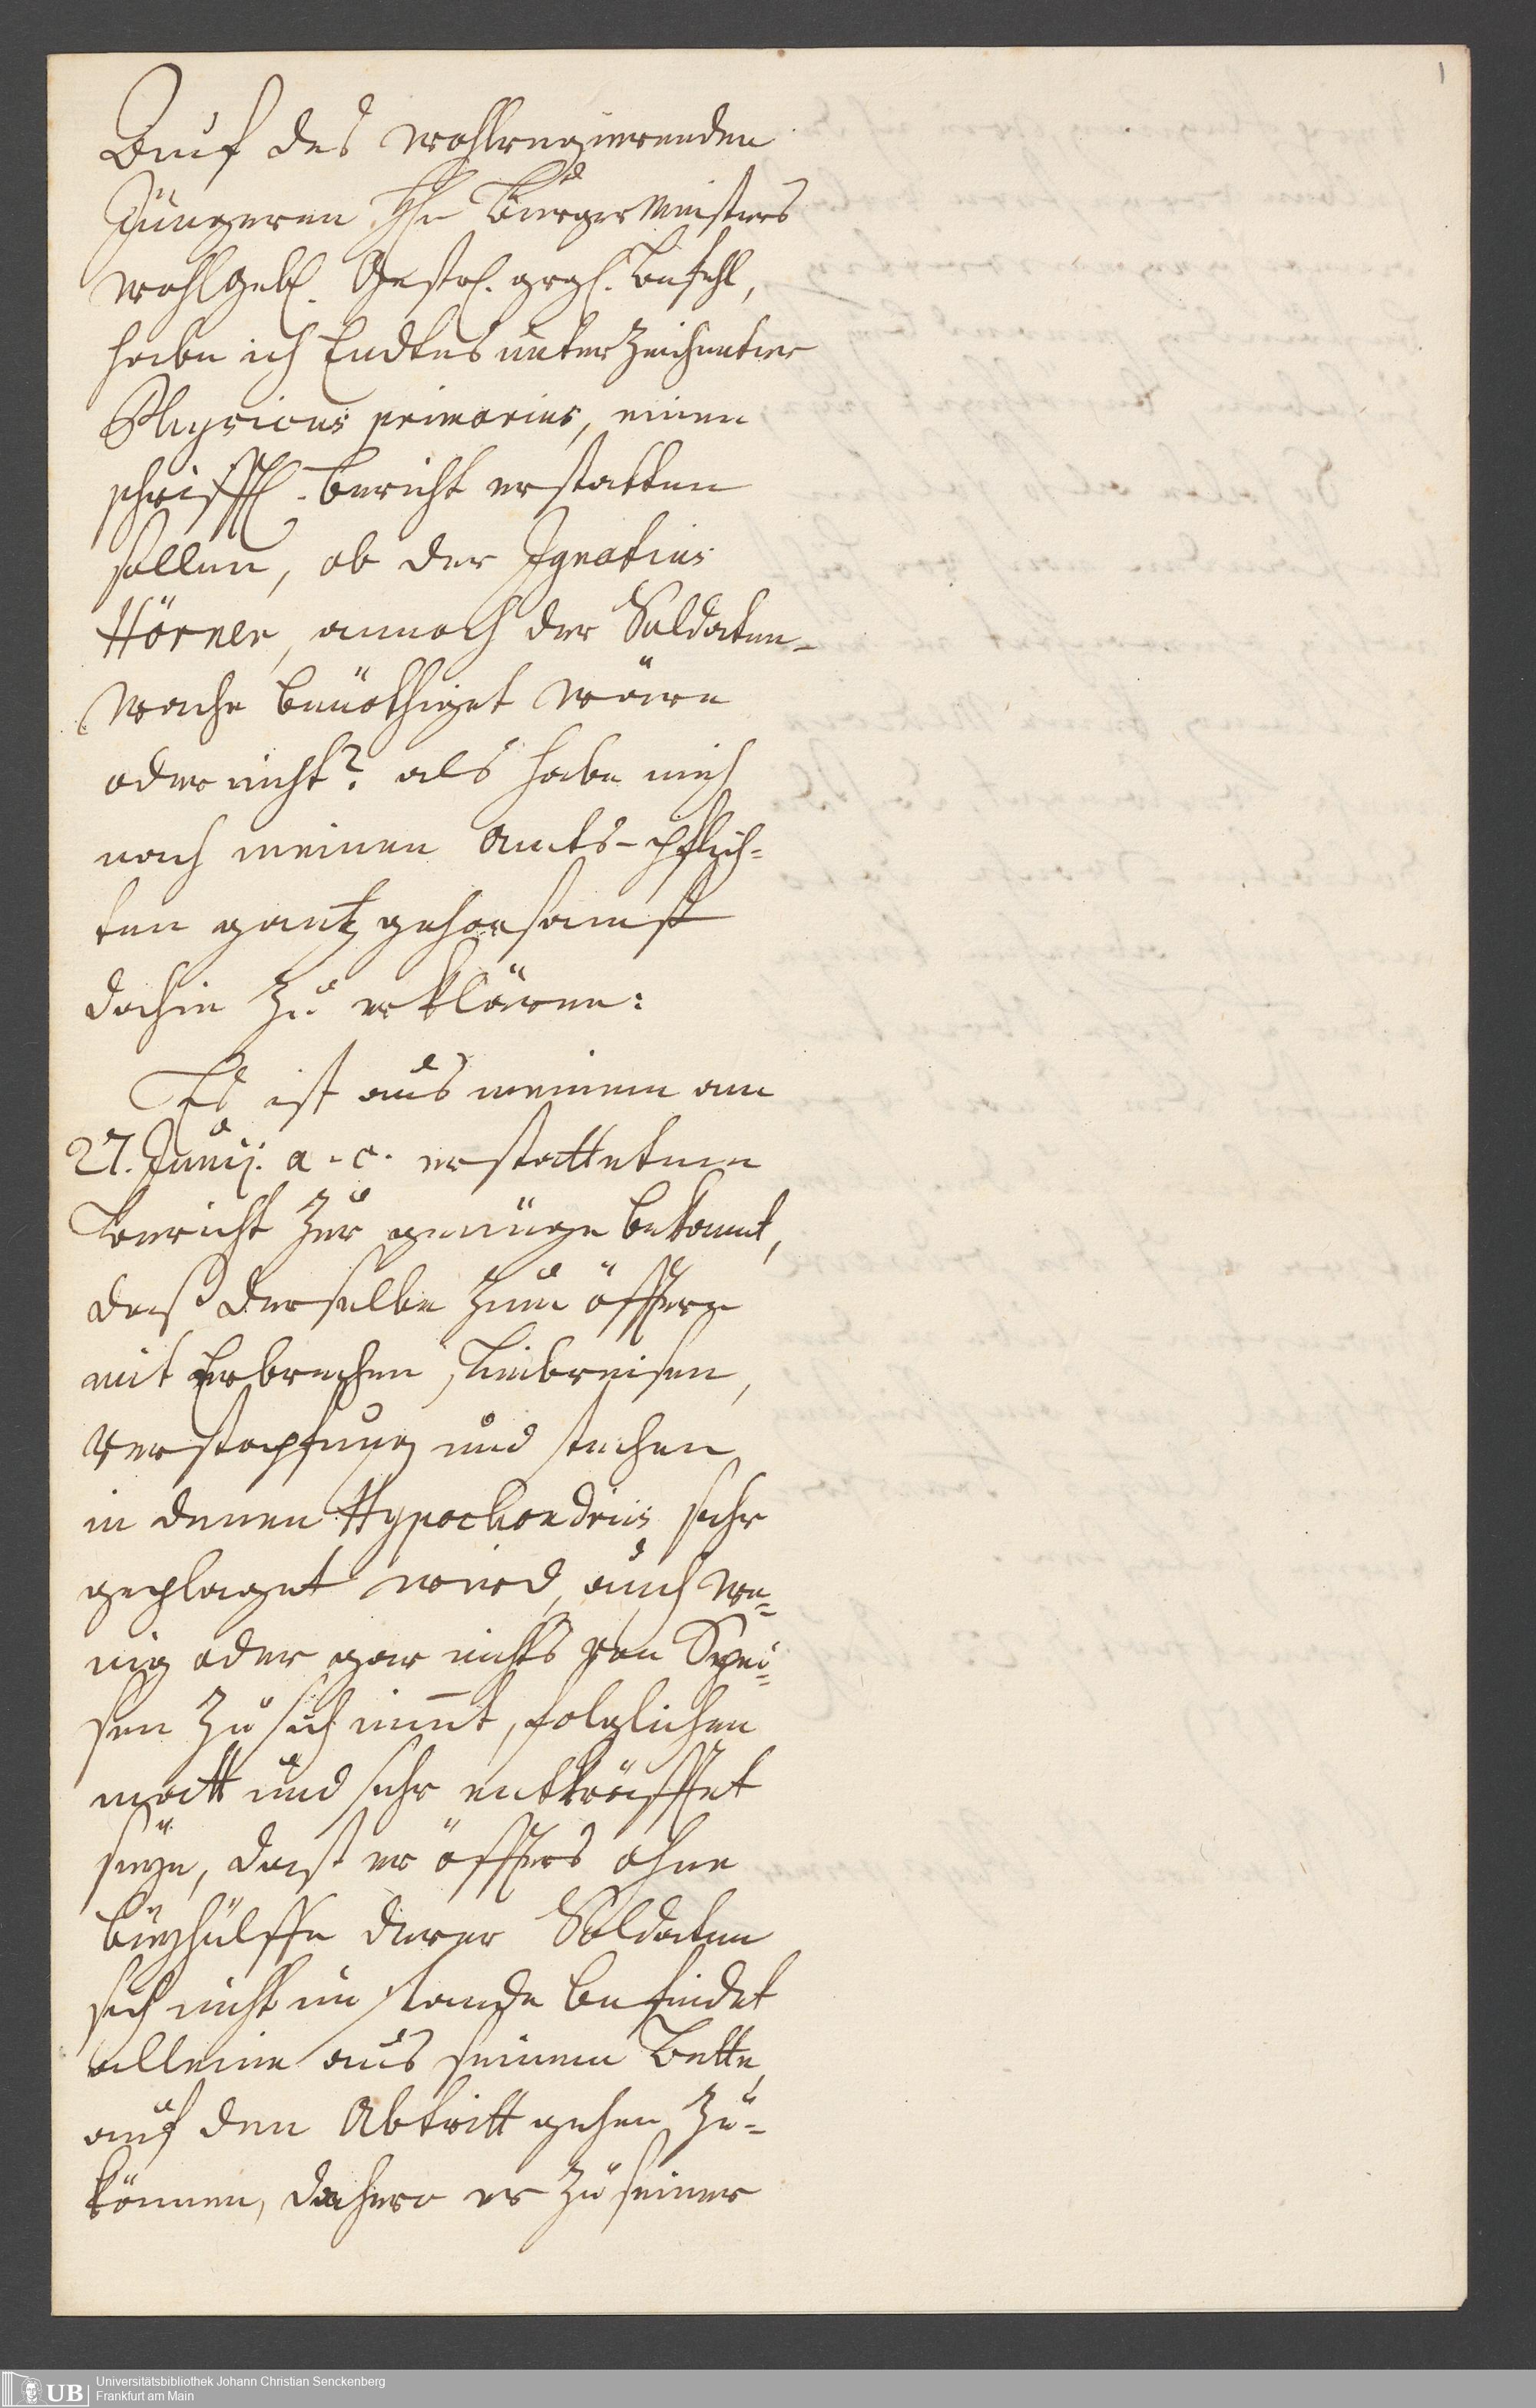 1
Auf des wohlregierenden
Jüngeren H. Burgermeisters
wohlgeb. Gestr. grgh. Befehl,
habe ich Endtes unterzeichneter
Physicus primarius, einen
schrifftl. Bericht erstatten
sollen, ob der Ignatius
Hörner, annoch der Soldaten-
wache benöthiget wäre
oder nicht? als habe mich
nach meinen Amts-pflich-
ten gantz gehorsamst
dahin zu erklären:
Es ist aus meinem am
27. Junij. a. c. erstattetem
Bericht zur genüge bekannt,
daß derselbe zum öfftern
mit Erbrechen, Leibreisen,
verstopfung und stechen
in denen Hypochondriis sehr
geplaget wird, auch we-
nig oder gar nichts von Spei-
sen zu sich nimt, folglichen
matt und sehr entkräfftet
seÿe, dast er öffters ohne
beÿhülffe derer Soldaten
sich nicht im stande befindet
alleine aus seinem Bette,
auf den Abtritt gehen zu-
können, dahero er zu seiner
UB
Universitätsbibliothek Johann Christian Senckenberg
Frankfurt am Main